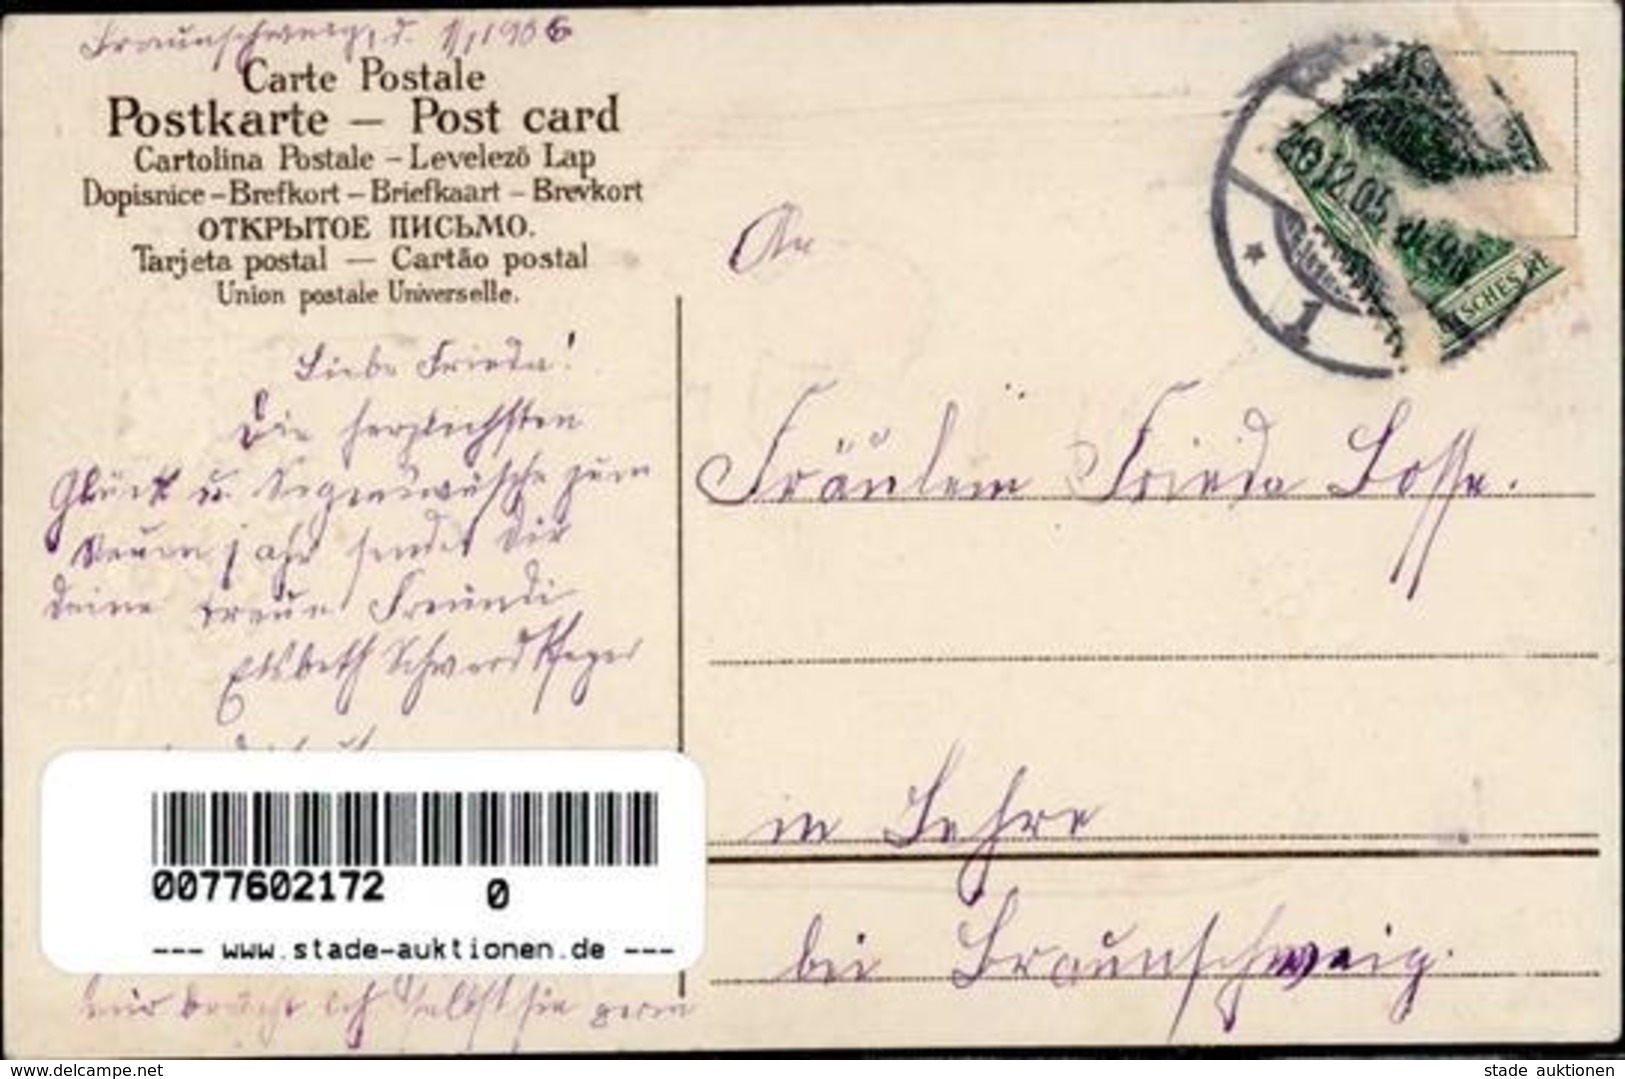 Braunschweig, d. 1/1, 1906
Carte Postale
Postkarte — Post card
Cartolina Postale – Levelező Lap
Dopisnice – Brefkort – Briefkaart – Brevkort
ОТКРЫТОЕ ПИСЬМО.
Tarjeta postal — Cartão postal
Union postale Universelle.
An
12.05
1
SCHES RE
Liebe Frieda!
Die herzlichsten
Glück u. Segenswünsche zum
Neuen Jahr sendet Dir
Deine treue Freundin
Elsbeth Schwerdtfeger
Fräulein Frieda Bosse.
in Lehre
bei Braunschweig.
0077602172 0
--- www.stade-auktionen.de ---
ich selbst sie gern
delcampe.net
stade auktionen